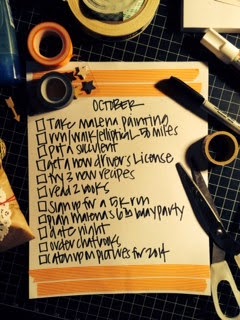 OCTOBER
Take malena painting
run/walk/elliptical 50 miles
pot a succulent
get a new drivers License
try 3 new recipes
read 2 books
sign up for a 5k run
plan malena's 6th bday party
date night
order chatbooks
catch up on pictures for 2014